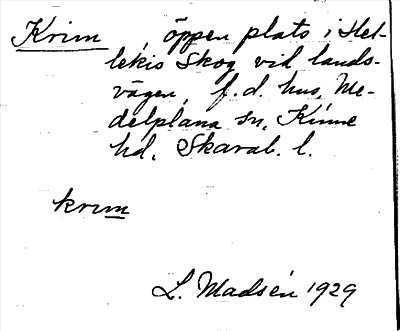 Krim, öppen plats i Hel-
lekis Skog vid lands-
vägen, f. d. hus, Me-
delplana sn, Kinne
hd, Skarab. l.
krim
L. Madsén 1929